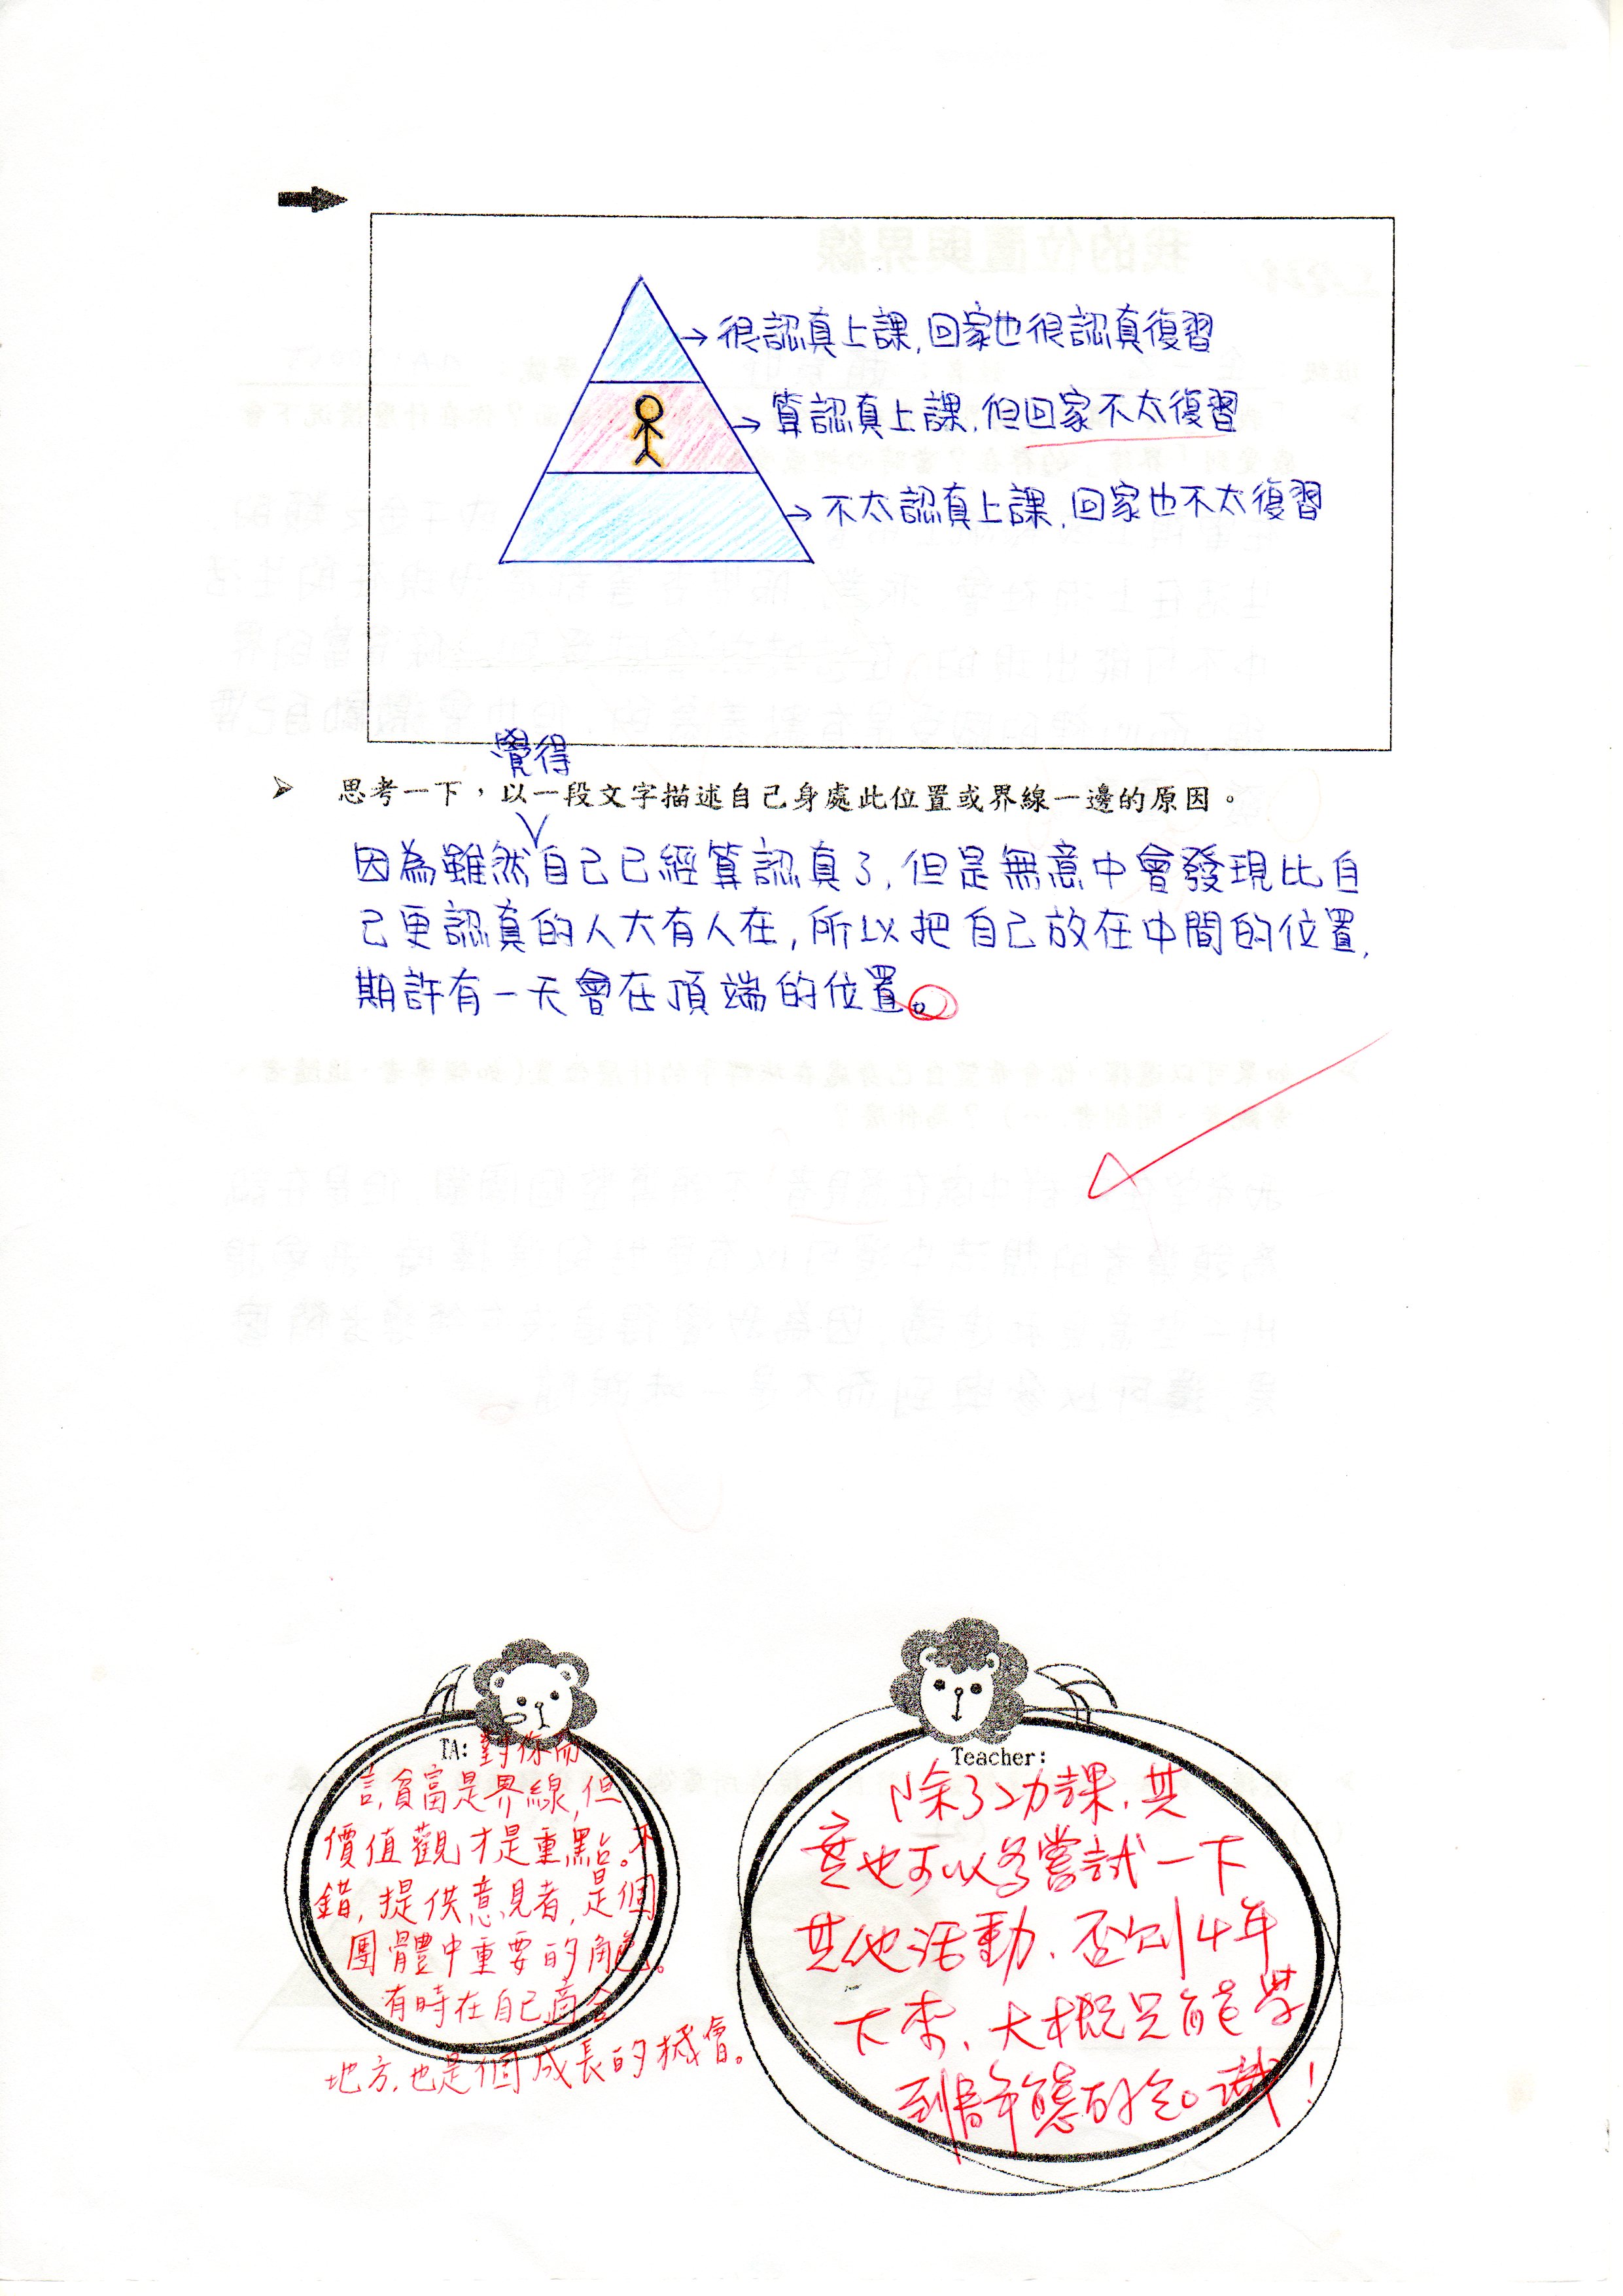 →很認真上課,回家也很認真復習
→算認真上課,但回家不太復習
→不太認真上課,回家也不太復習
➢ 思考一下，以一段文字描述自己身處此位置或界線一邊的原因。
覺得
因為雖然自己已經算認真了,但是無意中會發現比自
己更認真的人大有人在,所以把自己放在中間的位置,
期許有一天會在頂端的位置。
TA: 對你而
言,貧富是界線,但
價值觀才是重點。不
錯,提供意見者,是個
團體中重要的角色。
有時在自己適合
地方,也是個成長的機會。
Teacher:
除了功課,其
實也可以多嘗試一下
其他活動、否則4年
下來、大概只能學
到靜態的知識!